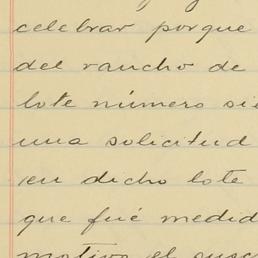 celebrar porque
del rancho de
lote número
una solicitud
en dicho lote
que fué
motivo el